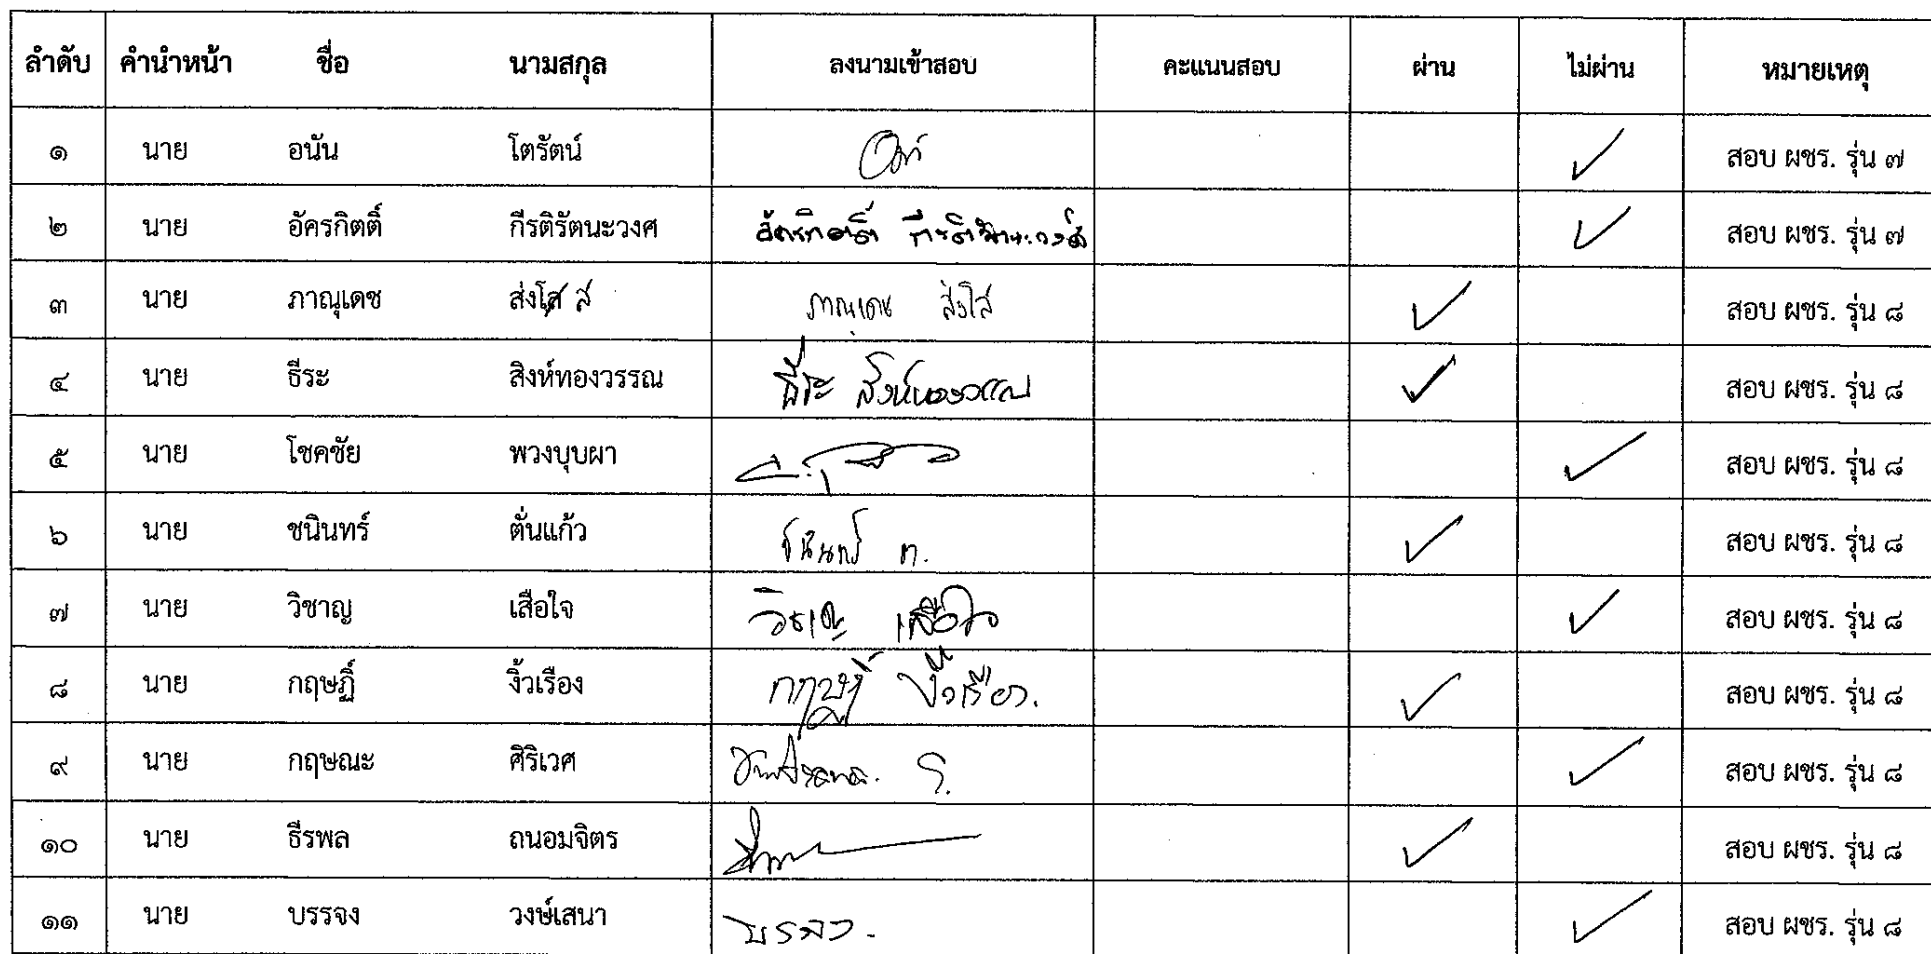 ลำดับ คำนำหน้า ชื่อ นามสกุล ลงนามเข้าสอบ คะแนนสอบ ผ่าน ไม่ผ่าน หมายเหตุ
๑ นาย อนัน โตรัตน์ ✓ สอบ ผชร. รุ่น ๗
๒ นาย อัครกิตติ์ กีรติรัตนะวงศ ✓ สอบ ผชร. รุ่น ๗
๓ นาย ภาณุเดช ส่งโส ส ภาณุเดช ส่งใส ✓ สอบ ผชร. รุ่น ๘
๔ นาย ธีระ สิงห์ทองวรรณ ธีระ สิงห์ทองวรรณ ✓ สอบ ผชร. รุ่น ๘
๕ นาย โชคชัย พวงบุบผา ✓ สอบ ผชร. รุ่น ๘
๖ นาย ชนินทร์ ตั่นแก้ว ชนินทร์ ต. ✓ สอบ ผชร. รุ่น ๘
๗ นาย วิชาญ เสือใจ วิชาญ เสือใจ ✓ สอบ ผชร. รุ่น ๘
๘ นาย กฤษฏิ์ งิ้วเรือง กฤษฏิ์ งิ้วเรือง. ✓ สอบ ผชร. รุ่น ๘
๙ นาย กฤษณะ ศิริเวศ ✓ สอบ ผชร. รุ่น ๘
๑๐ นาย ธีรพล ถนอมจิตร ✓ สอบ ผชร. รุ่น ๘
๑๑ นาย บรรจง วงษ์เสนา บรรจง. ✓ สอบ ผชร. รุ่น ๘